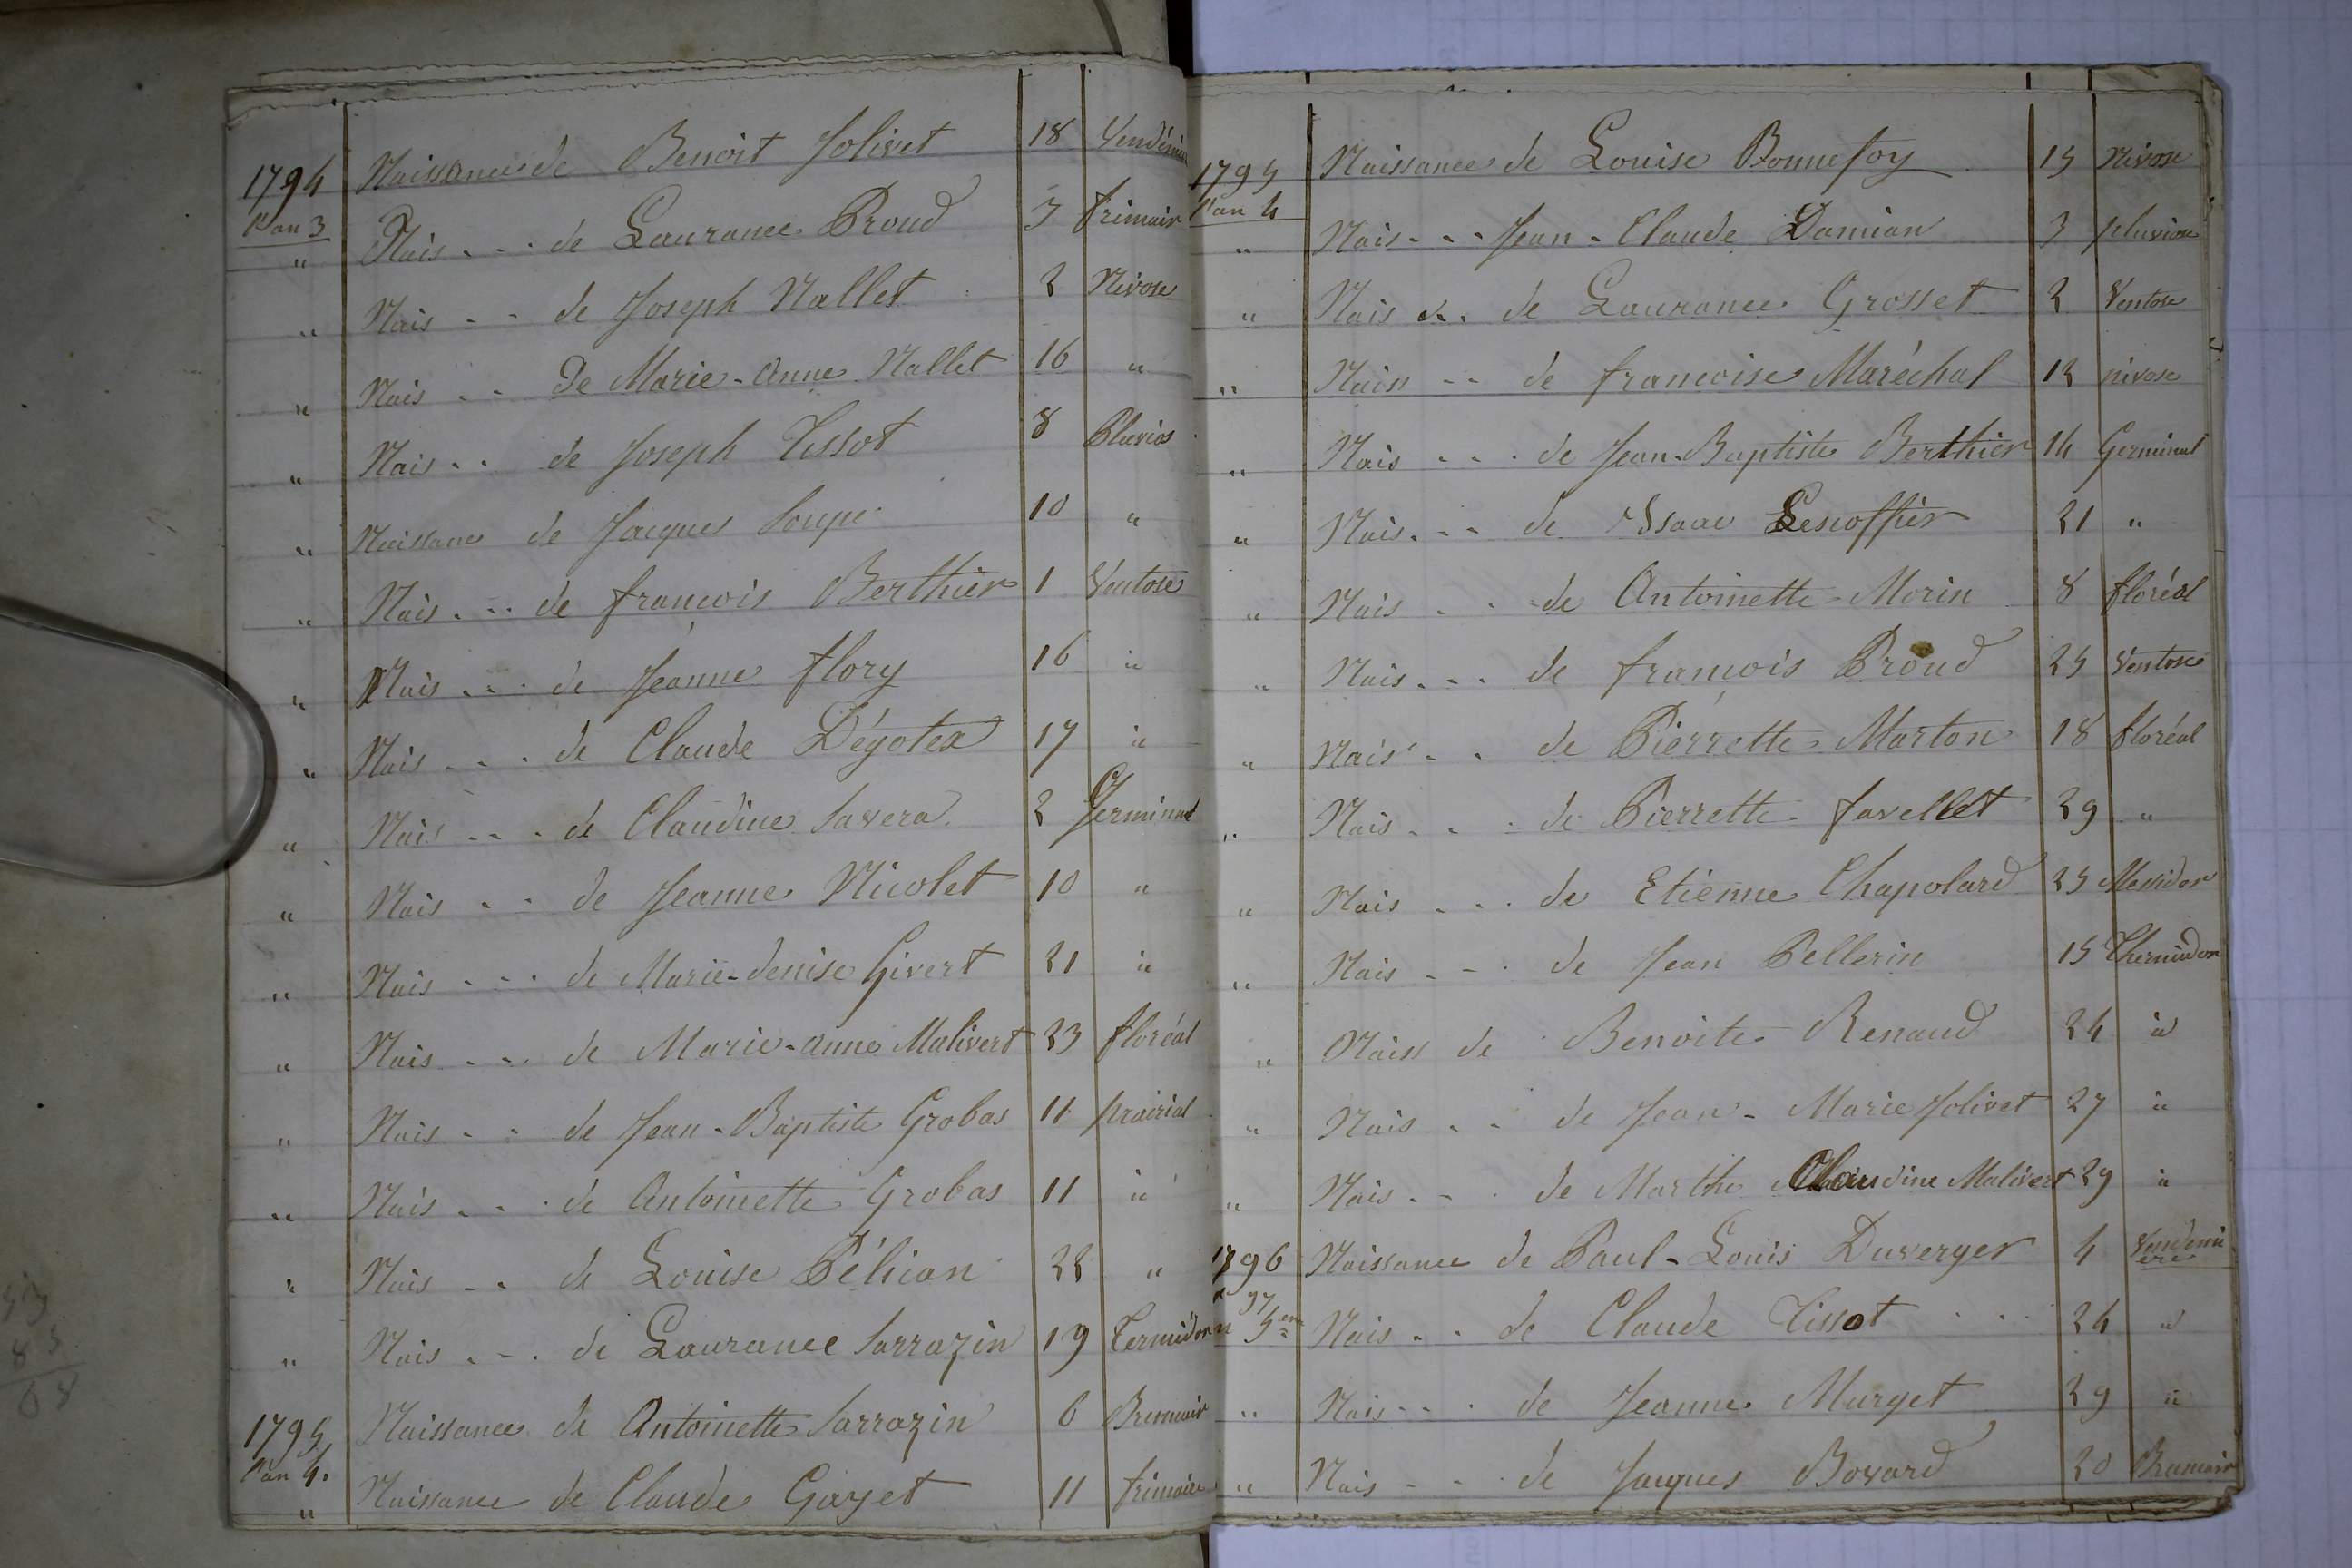 1794 Naissance de Benoit Jolivet 18 Vendémi
l'an 3
" Nais - - - de Laurance Proud 3 frimair
" Nais - - de Joseph Nallet 2 Nivose
" Nais - - De Marie-Anne Nallet 16 "
" Nais - - de Joseph Tissot 8 Pluvios
" Naissance de Jacques Soupe 10 "
" Nais - - - de francois Berthier 1 Ventose
" Nais - - - de Jeanne flory 16 "
" Nais - - - de Claude Dégotex 17 "
" Nais - - - de Claudine Savera 2 Germinal
" Nais - - de Jeanne Nicolet 10 "
" Nais - - - de Marie-denise Givert 21 "
" Nais - - - de Marie-anne Malivert 23 floréal
" Nais - - de Jean-Baptiste Grobas 11 prairial
" Nais - - - de Antoinette Grobas 11 "
" Nais - - de Louise Pélican 28 "
" Nais - - - de Laurance Sarrazin 19 Termidor
1795 Naissance de Antoinette Sarrazin 6 Brumair
l'an 4.
" Naissance de Claude Gayet 11 frimaire
1795 Naissance de Louise Bonnefoy 15 Nivose
l'an 4
" Nais - - - Jean-Claude Damian 3 pluviose
" Nais - - de Laurance Grosset 2 Ventose
" Naiss - - de francoise Maréchal 12 nivose
" Nais - - - de Jean-Baptiste Berthier 14 Germinal
" Nais - - - de Isaac Lescoffier 21 "
" Nais - - - de Antoinette Morin 8 floréal
" Nais - - - de françois Proud 25 Ventose
" Nais - - de Pierrette Marton 18 floréal
" Nais - - - de Pierrette favellet 29 "
" Nais - - - de Etienne Chapolard 25 Messidor
" Nais - - - de Jean Pellerin 15 Thermidor
" Naiss de Benoite Renaud 24 "
" Nais - - de Jean-Marie Jolivet 27 "
" Nais - - - de Marthe Claudine Malivert 29 "
1796 Naissance de Paul-Louis Duverger 4 Vendémi
ere
97
5em Nais - - de Claude Tissot 24 "
" Nais - - - de Jeanne Murget 29 "
" Nais - - - de Jacques Bovard 20 Brumair